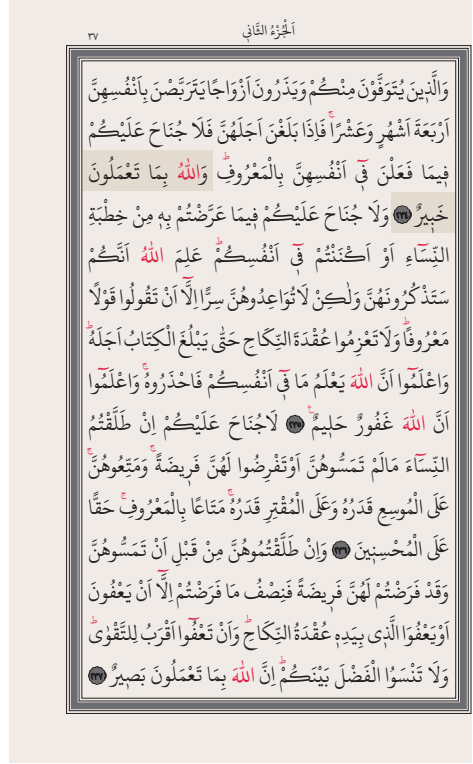 اَلْجُزْءُ الثَّانٖي
٣٧
وَالَّذٖينَ يُتَوَفَّوْنَ مِنْكُمْ وَيَذَرُونَ اَزْوَاجًا يَتَرَبَّصْنَ بِاَنْفُسِهِنَّ
اَرْبَعَةَ اَشْهُرٍ وَعَشْرًاۚ فَاِذَا بَلَغْنَ اَجَلَهُنَّ فَلَا جُنَاحَ عَلَيْكُمْ
فٖيمَا فَعَلْنَ فٖٓي اَنْفُسِهِنَّ بِالْمَعْرُوفِؕ وَاللّٰهُ بِمَا تَعْمَلُونَ
خَبٖيرٌ ﴿٢٣٤﴾ وَلَا جُنَاحَ عَلَيْكُمْ فٖيمَا عَرَّضْتُمْ بِهٖ مِنْ خِطْبَةِ
النِّسَٓاءِ اَوْ اَكْنَنْتُمْ فٖٓي اَنْفُسِكُمْؕ عَلِمَ اللّٰهُ اَنَّكُمْ
سَتَذْكُرُونَهُنَّ وَلٰكِنْ لَا تُوَاعِدُوهُنَّ سِرًّا اِلَّٓا اَنْ تَقُولُوا قَوْلًا
مَعْرُوفًاؕ وَلَا تَعْزِمُوا عُقْدَةَ النِّكَاحِ حَتّٰى يَبْلُغَ الْكِتَابُ اَجَلَهُؕ
وَاعْلَمُٓوا اَنَّ اللّٰهَ يَعْلَمُ مَا فٖٓي اَنْفُسِكُمْ فَاحْذَرُوهُۚ وَاعْلَمُٓوا
اَنَّ اللّٰهَ غَفُورٌ حَلٖيمٌۚ ﴿٢٣٥﴾ لَا جُنَاحَ عَلَيْكُمْ اِنْ طَلَّقْتُمُ
النِّسَٓاءَ مَا لَمْ تَمَسُّوهُنَّ اَوْ تَفْرِضُوا لَهُنَّ فَرٖيضَةًۚ وَمَتِّعُوهُنَّۚ
عَلَى الْمُوسِعِ قَدَرُهُ وَعَلَى الْمُقْتِرِ قَدَرُهُۚ مَتَاعًا بِالْمَعْرُوفِۚ حَقًّا
عَلَى الْمُحْسِنٖينَ ﴿٢٣٦﴾ وَاِنْ طَلَّقْتُمُوهُنَّ مِنْ قَبْلِ اَنْ تَمَسُّوهُنَّ
وَقَدْ فَرَضْتُمْ لَهُنَّ فَرٖيضَةً فَنِصْفُ مَا فَرَضْتُمْ اِلَّٓا اَنْ يَعْفُونَ
اَوْ يَعْفُوَا الَّذٖي بِيَدِهٖ عُقْدَةُ النِّكَاحِؕ وَاَنْ تَعْفُٓوا اَقْرَبُ لِلتَّقْوٰىؕ
وَلَا تَنْسَوُا الْفَضْلَ بَيْنَكُمْؕ اِنَّ اللّٰهَ بِمَا تَعْمَلُونَ بَصٖيرٌ ﴿٢٣٧﴾